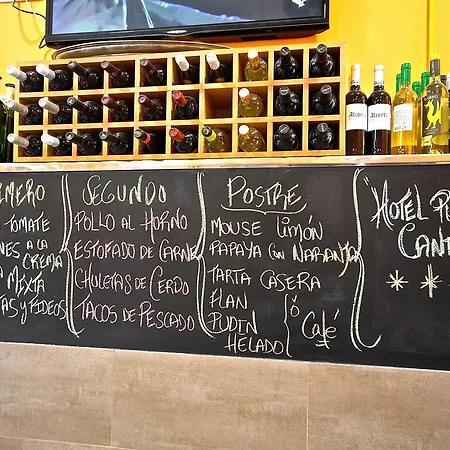 MERO
TOMATE
NES A LA
CREMA
A MIXTA
AS Y FIDEOS
SEGUNDO
POLLO AL HORNO
ESTOFADO DE CARNE
CHULETAS DE CERDO
TACOS DE PESCADO
POSTRE
MOUSE LIMÓN
PAPAYA CON NARANJA
TARTA CASERA
FLAN
PUDIN
HELADO
ó
Café
"HOTEL P
CANT